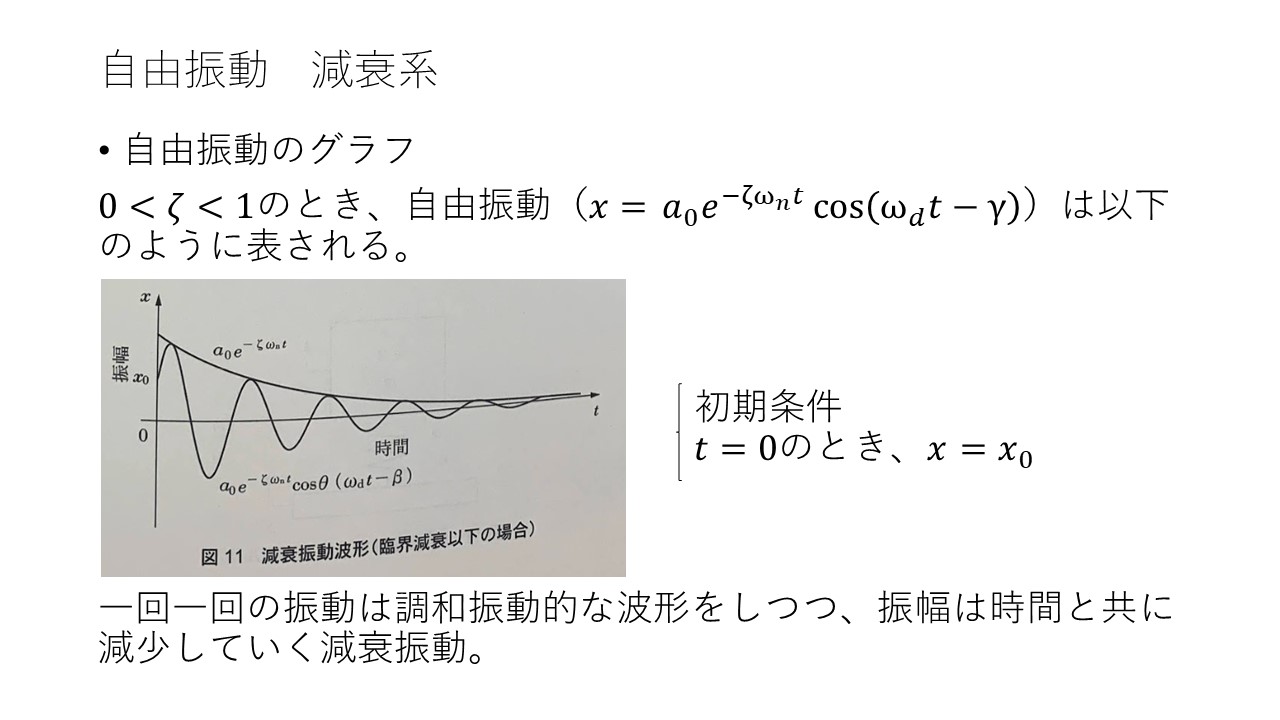 自由振動　減衰系
• 自由振動のグラフ
0 < ζ < 1のとき、自由振動（x = a₀e^{−ζωₙt} cos(ω_d t − γ)）は以下
のように表される。
x
a₀e^{−ζωₙt}
振幅
x₀
0
t
時間
a₀e^{−ζωₙt}cosθ（ω_d t−β）
図 11　減衰振動波形（臨界減衰以下の場合）
初期条件
t = 0のとき、x = x₀
一回一回の振動は調和振動的な波形をしつつ、振幅は時間と共に
減少していく減衰振動。